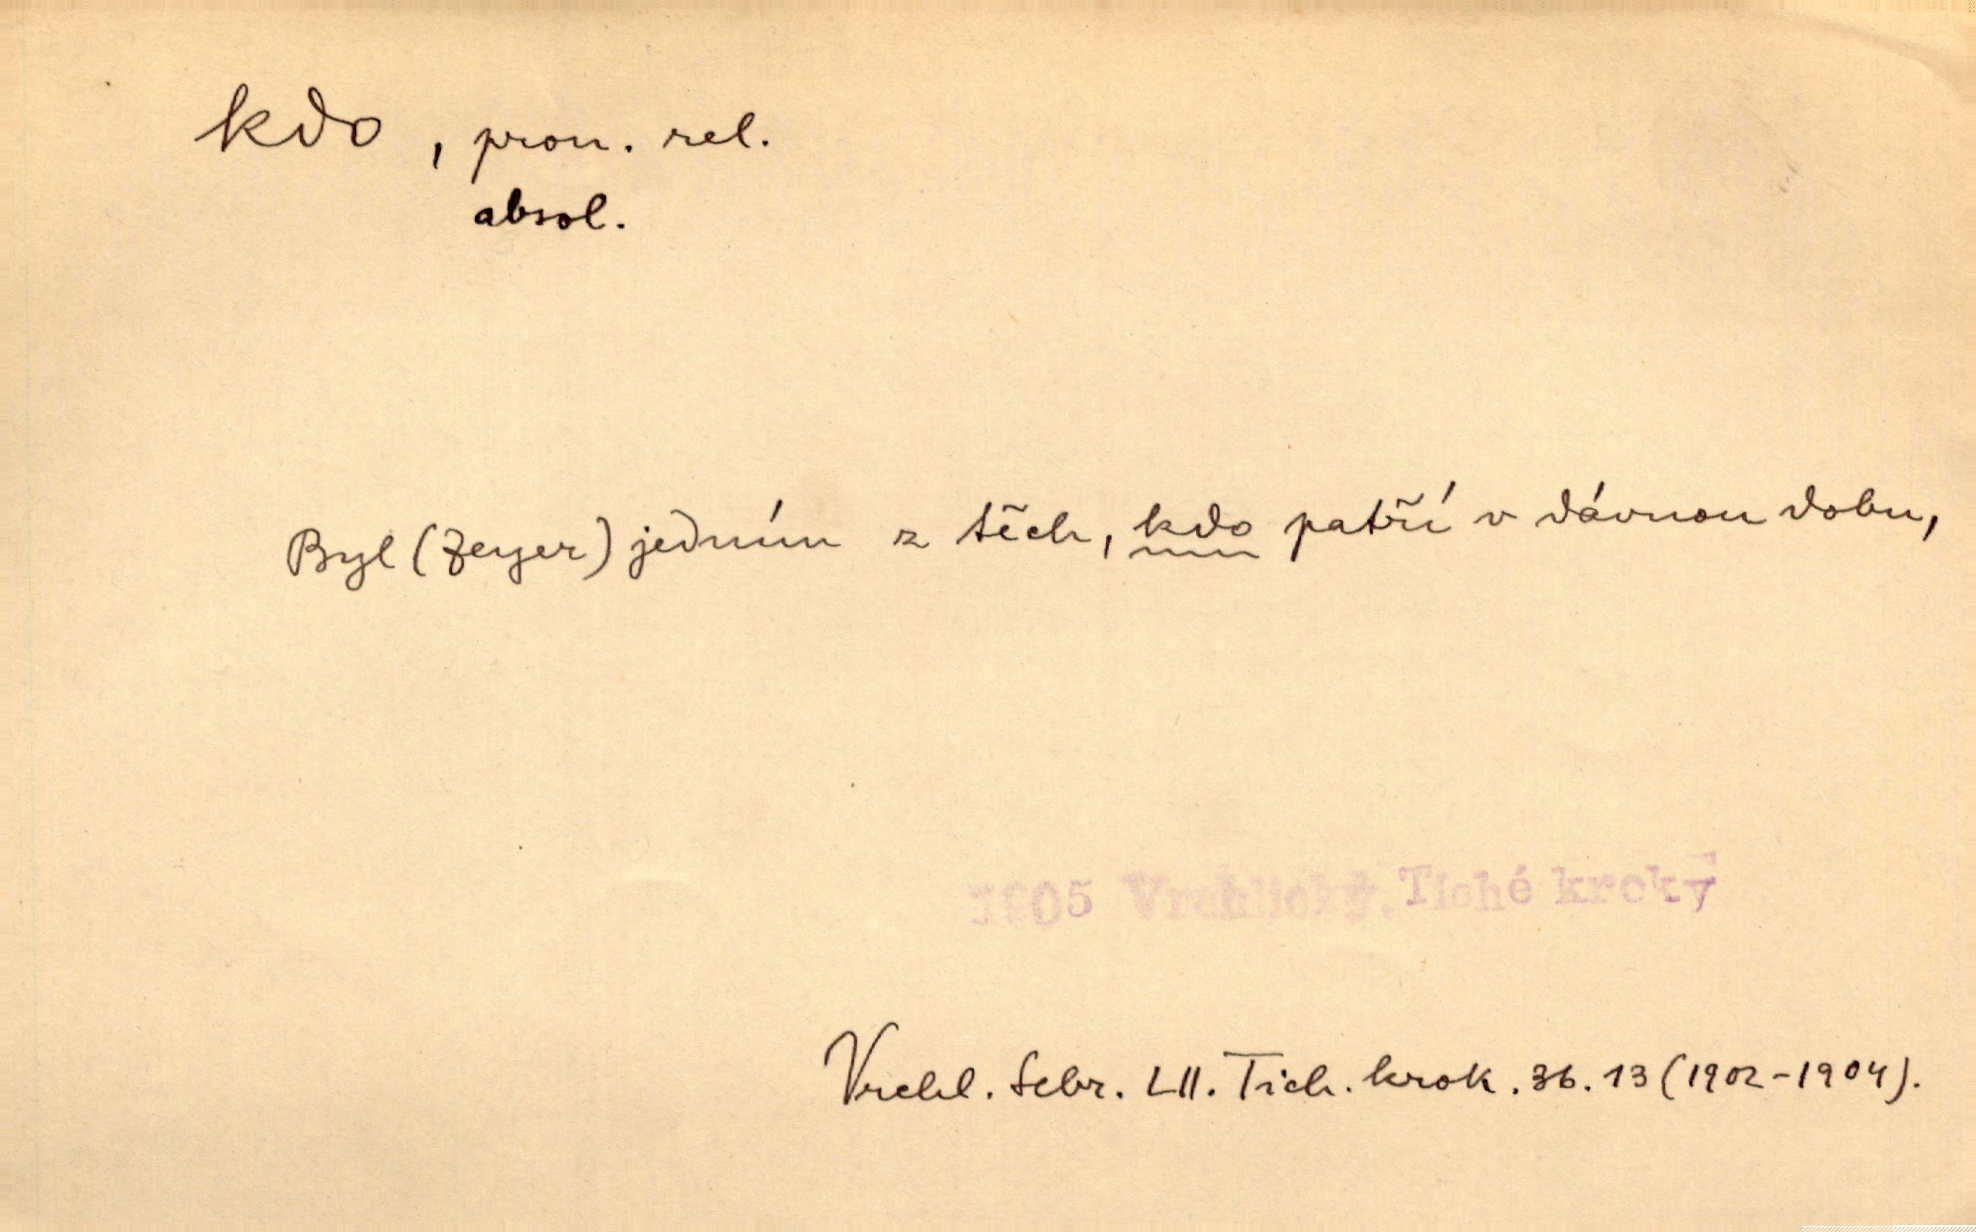 kdo, pron. rel.
absol.
Byl (Zeyer) jedním z těch, kdo patří v dávnou dobu,
1905 Vrchlický. Tiché kroky
Vrchl. Sebr. LII. Tich. krok. 36. 13 (1902-1904).